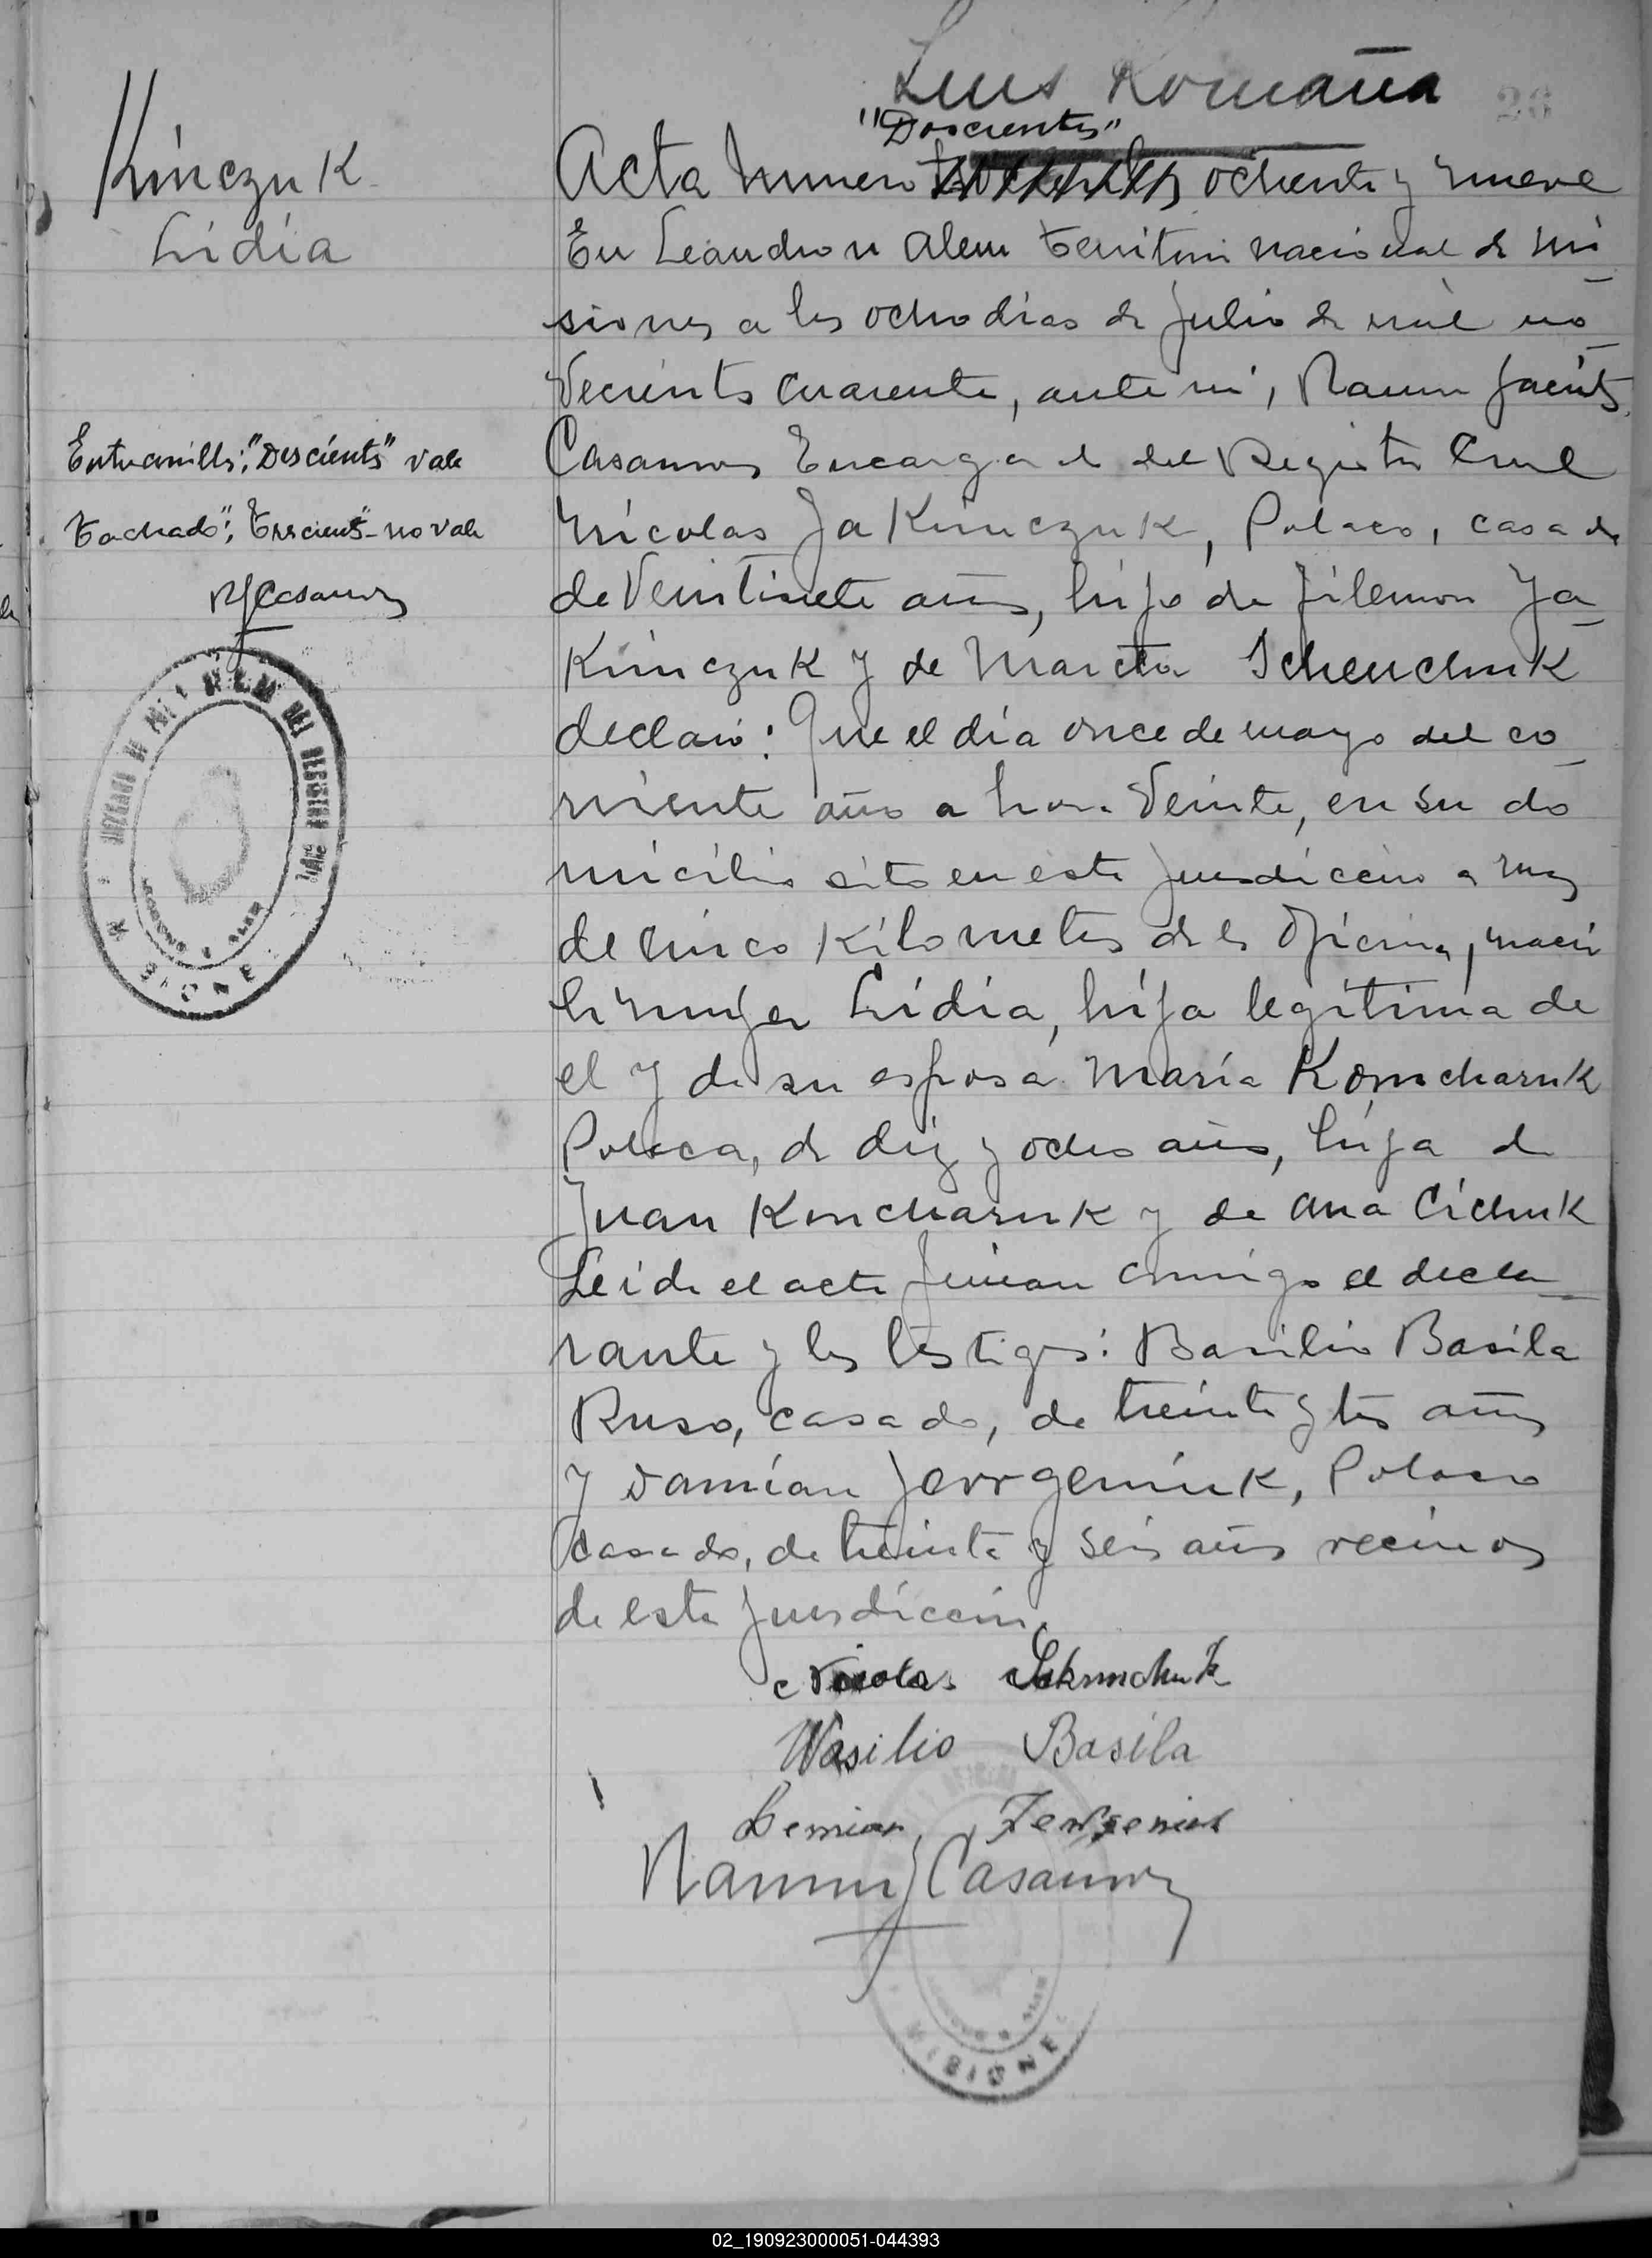 Luis Romaña
26
"Doscientos"
Kinczuk
Lidia
Acta numero trescientos ochenta y nueve
En Leandro n Alem territorio nacional de Mi
siones a los ocho dias de julio de mil no
vecientos cuarenta, ante mi, Ramon Jacinto
Casanova Encargado del Registro Civil
Nicolas JaKinczuk, Polaco, casado
de Veintisiete años, hijo de filemon Ja
Kinczuk y de Marta Schenchuk
declaró: Que el día once de mayo del co
rriente año a hora Veinte, en su do
micilio sito en esta jurisdiccion a mas
de cinco Kilometros de la Oficina, nació
la mujer Lidia, hija legítima de
el y de su esposa María Komcharuk
Polaca, de diez y ocho años, hija de
Juan Koncharuk y de Ana Cichuk
Leida el acta firman conmigo el decla
rante y los testigos: Basilio Basila
Ruso, casado, de treinta y tres años
y Damían Jevrgeniuk, Polaco
casado, de treinta y seis años vecinos
de esta jurisdiccion.
Entreanillo: "Doscients" vale
Tachado": Trescients" no vale
RJCasanova
MISIONES
Nicolas
Wasilio Basila
Demian
Ramon J Casanova
MISIONES
02_190923000051-044393